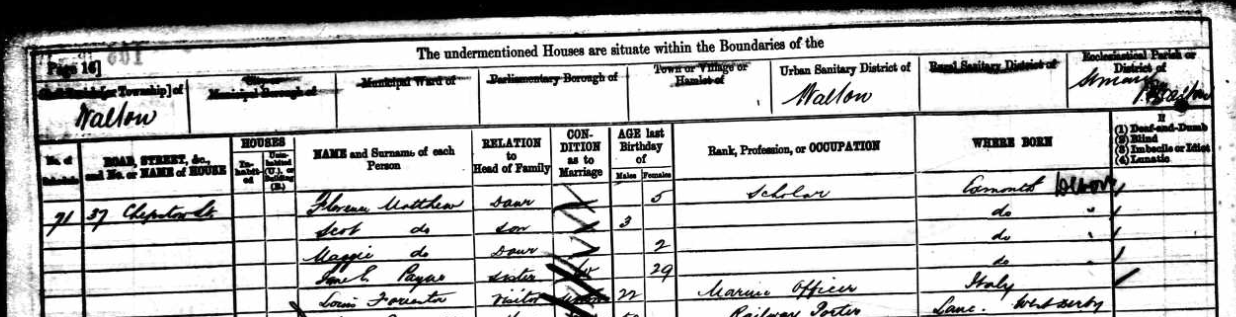 601
The undermentioned Houses are situate within the Boundaries of the
Page 16]
Township] of
Municipal Borough of
Municipal Ward of
Parliamentary Borough of
Town or Village or
Hamlet of
Urban Sanitary District of
Rural Sanitary District of
Ecclesiastical Parish or
District of
Walton
Walton
No. of
Schedule
ROAD, STREET, &c.,
and No. or NAME of HOUSE
HOUSES
In-
habit-
ed
Unin-
habited
(U.), or
Building
(B.)
NAME and Surname of each
Person
RELATION
to
Head of Family
CON-
DITION
as to
Marriage
AGE last
Birthday
of
Males
Females
Rank, Profession, or OCCUPATION
WHERE BORN
If
(1) Deaf-and-Dumb
(2) Blind
(3) Imbecile or Idiot
(4) Lunatic
91 37 Chepstow St. Florence Matthew Daur 5 Scholar
Scot do Son 3 do
Maggie do Daur 2 do
Payne Sister 29 do
Louis Forrester Visitor 22 Marine Officer Italy
Railway Porter Lanc. West Derby